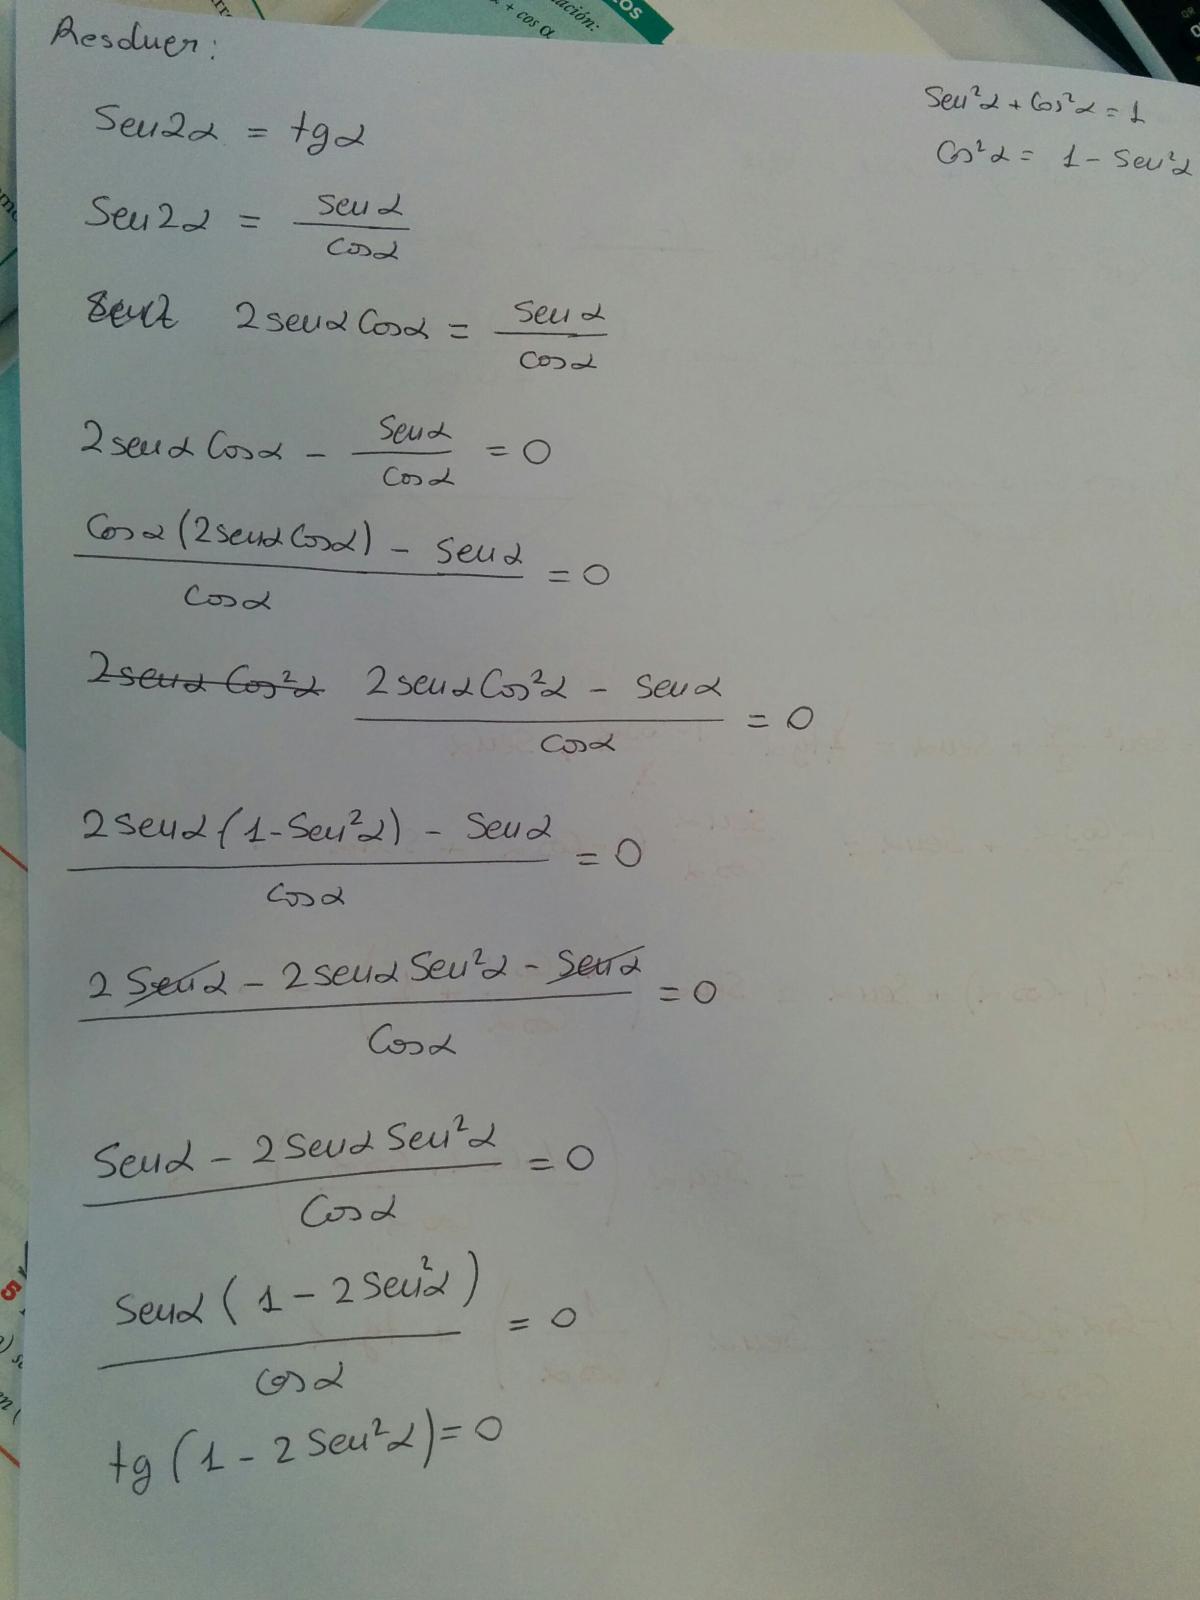 ación:
+ cos α
Resolver:
Sen2α = tgα
Sen²α + Cos²α = 1
Cos²α = 1 - Sen²α
Sen2α = senα / cosα
2senαCosα = senα / cosα
2senαCosα - senα / cosα = 0
Cosα(2senαCosα) - senα / Cosα = 0
2senαCos²α 2senαCos²α - senα / cosα = 0
2senα(1-Sen²α) - Senα / cosα = 0
2Senα - 2senαSen²α - Senα / Cosα = 0
Senα - 2SenαSen²α / Cosα = 0
senα(1 - 2Sen²α) / cosα = 0
tg(1 - 2Sen²α) = 0